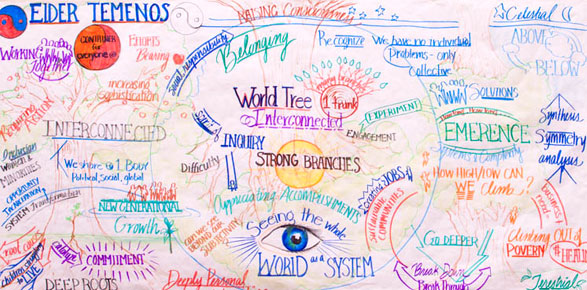 ELDER TEMENOS
RAISING Consciousness
Celestial
CONTAINER
for
everyone
EFFORTS
Bearing
Social Responsibility
Belonging
RecOGNIZE
We have no individual
Problems - only
Collective
ABOVE
BELOW
WORKING
Together
increasing
Sophistication
World Tree
1 Trunk
Interconnected
SOLUTIONS
(EXPERIMENT)
ENGAGEMENT
Synthesis
Symmetry
analysis
INTERCONNECTED
INQUIRY
EMERENCE
We share 1 Body
Political, Social, global
Difficulty
STRONG BRANCHES
HOW HIGH/LOW CAN
WE climb?
OPPORTUNITY
SYSTEM Transformation
NEW GENERATIONAL
Growth
Appreciating Accomplishments
Creating JOBS
Sustainable
COMMUNITIES
Seeing the whole
GO DEEPER
Climbing OUT of
POVERTY
COMMITMENT
WORLD as a SYSTEM
#HEAL
DEEP ROOTS
Deeply Personal
Break Down
Break Through
Terrestrial